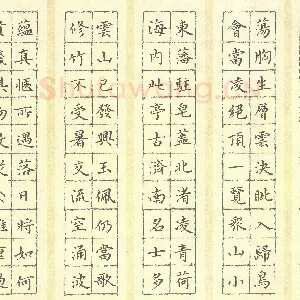 蕩胸生層雲決眦入歸鳥
會當凌絕頂一覽眾山小
東籓駐皂蓋北者凌青荷
海內此亭古濟南名士多
雲山已發興玉佩仍當歌
修竹不受暑交流空涌波
蘊真愜所遇落日將如何